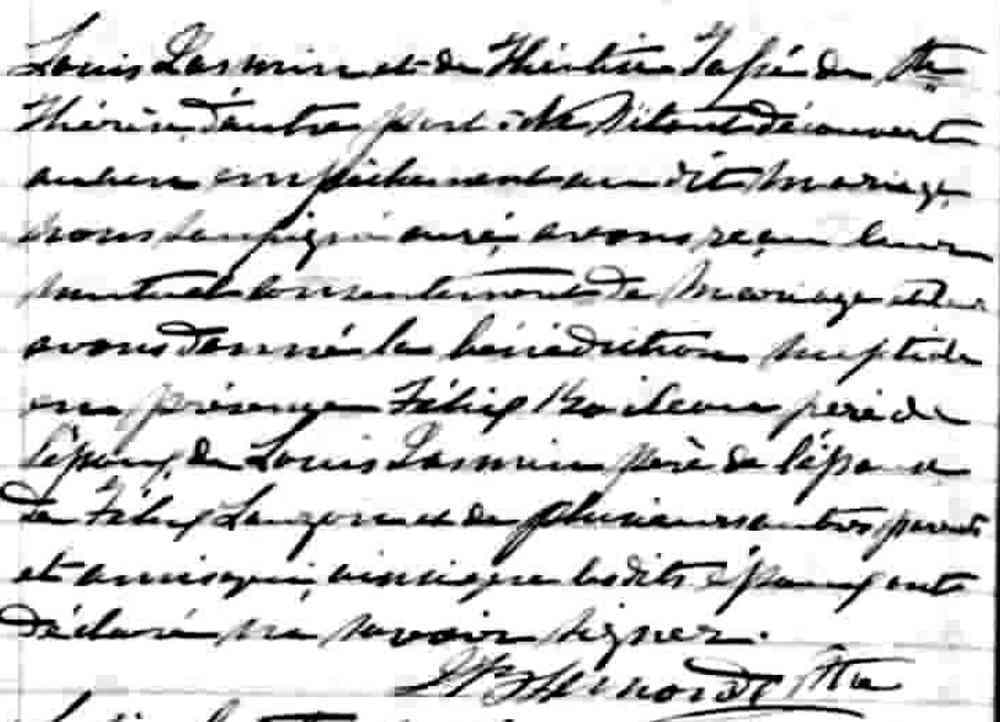 Louis Jasmin et de Thertine Taffé de Ste
Thérèse, d'autre part; ne s'étant découvert
aucun empêchement au dit mariage
nous soussigné curé, avons reçu leur
mutuel consentement de mariage et leur
avons donné la bénédiction nuptiale
en présence Félix Boileau père de
l'époux, de Louis Jasmin père de l'épouse
de Félix Lauzon et de plusieurs autres parents
et amis qui, ainsi que lesdits époux ont
déclaré ne savoir signer.
Ptre